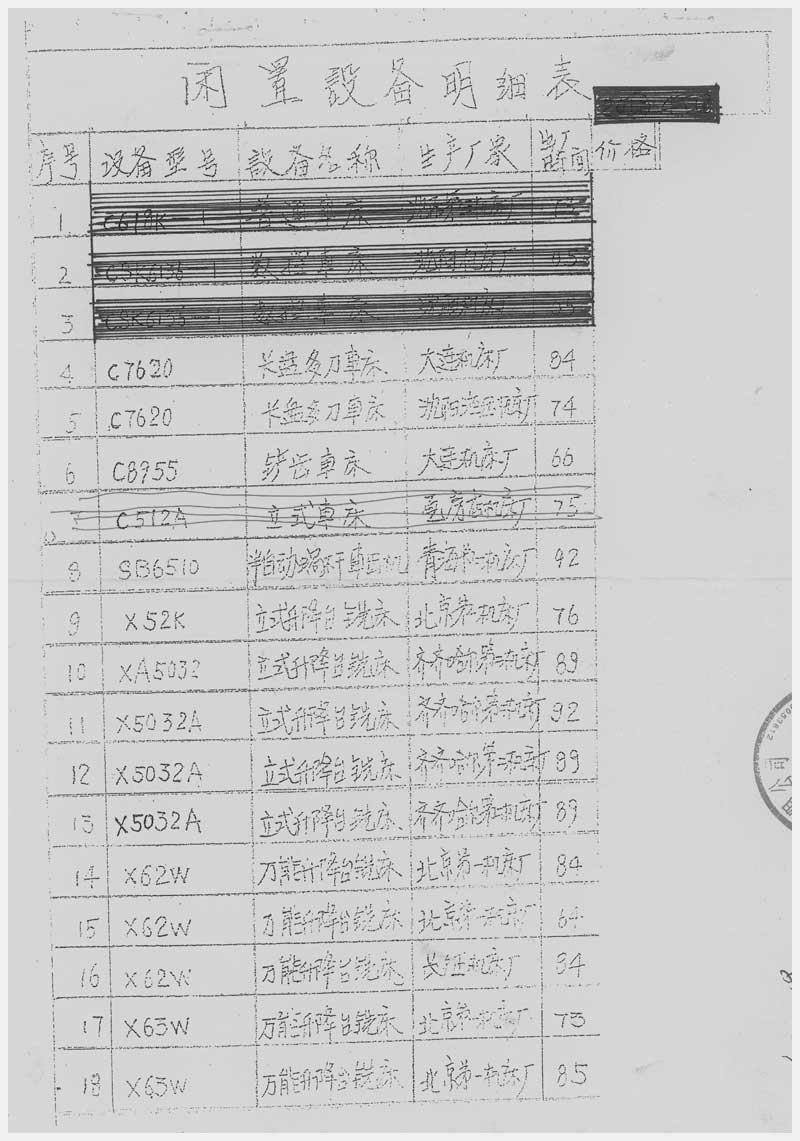 闲置設备明细表
序号 设备型号 設备名称 生产厂家 出厂时间 价格
1 C618K-1 普通車床
2 CSK6136-1 数控車床 85
3 CSK6136-1 数控車床
4 C7620 卡盘多刀車床 大连机床厂 84
5 C7620 卡盘多刀車床 74
6 C8955 铲齿車床 大连机床厂 66
7 C512A 立式車床 75
8 SB6510 半自动蝸杆車 青海第一机床厂 92
9 X52K 立式升降台铣床 北京第一机床厂 76
10 XA5032 立式升降台铣床 齐齐哈尔第二机床厂 89
11 X5032A 立式升降台铣床 齐齐哈尔第二机床厂 92
12 X5032A 立式升降台铣床 齐齐哈尔第二机床厂 89
13 X5032A 立式升降台铣床 齐齐哈尔第二机床厂 89
14 X62W 万能升降台铣床 北京第一机床厂 84
15 X62W 万能升降台铣床 北京第一机床厂 64
16 X62W 万能升降台铣床 长征机床厂 84
17 X63W 万能升降台铣床 北京第一机床厂 73
18 X63W 万能升降台铣床 北京第一机床厂 85
公司